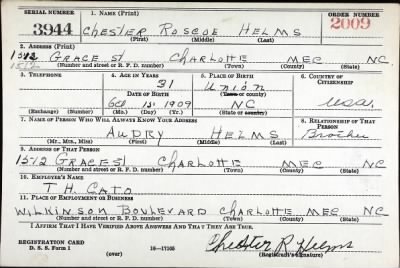 SERIAL NUMBER 1. NAME (Print) ORDER NUMBER
3944 CHESTER ROSCOE HELMS 2009
(First) (Middle) (Last)
2. ADDRESS (Print)
1512 GRACE St CHARLOTTE MEC NC
(Number and street or R. F. D. number) (Town) (County) (State)
3. TELEPHONE 4. AGE IN YEARS 5. PLACE OF BIRTH 6. COUNTRY OF CITIZENSHIP
31 Union
DATE OF BIRTH (Town or county)
13 1909 NC USA
(Exchange) (Number) (Mo.) (Day) (Yr.) (State or country)
7. NAME OF PERSON WHO WILL ALWAYS KNOW YOUR ADDRESS 8. RELATIONSHIP OF THAT PERSON
AUDRY HELMS Brother
(Mr., Mrs., Miss) (First) (Middle) (Last)
9. ADDRESS OF THAT PERSON
1512 GRACE St CHARLOTTE MEC NC
(Number and street or R. F. D. number) (Town) (County) (State)
10. EMPLOYER'S NAME
T H. CATO
11. PLACE OF EMPLOYMENT OR BUSINESS
WILKINSON BOULEVARD CHARLOTTE MEC NC
(Number and street or R. F. D. number) (Town) (County) (State)
I AFFIRM THAT I HAVE VERIFIED ABOVE ANSWERS AND THAT THEY ARE TRUE.
REGISTRATION CARD
D. S. S. Form 1 (over) 16—17105 Chester R. Helms
(Registrant's signature)